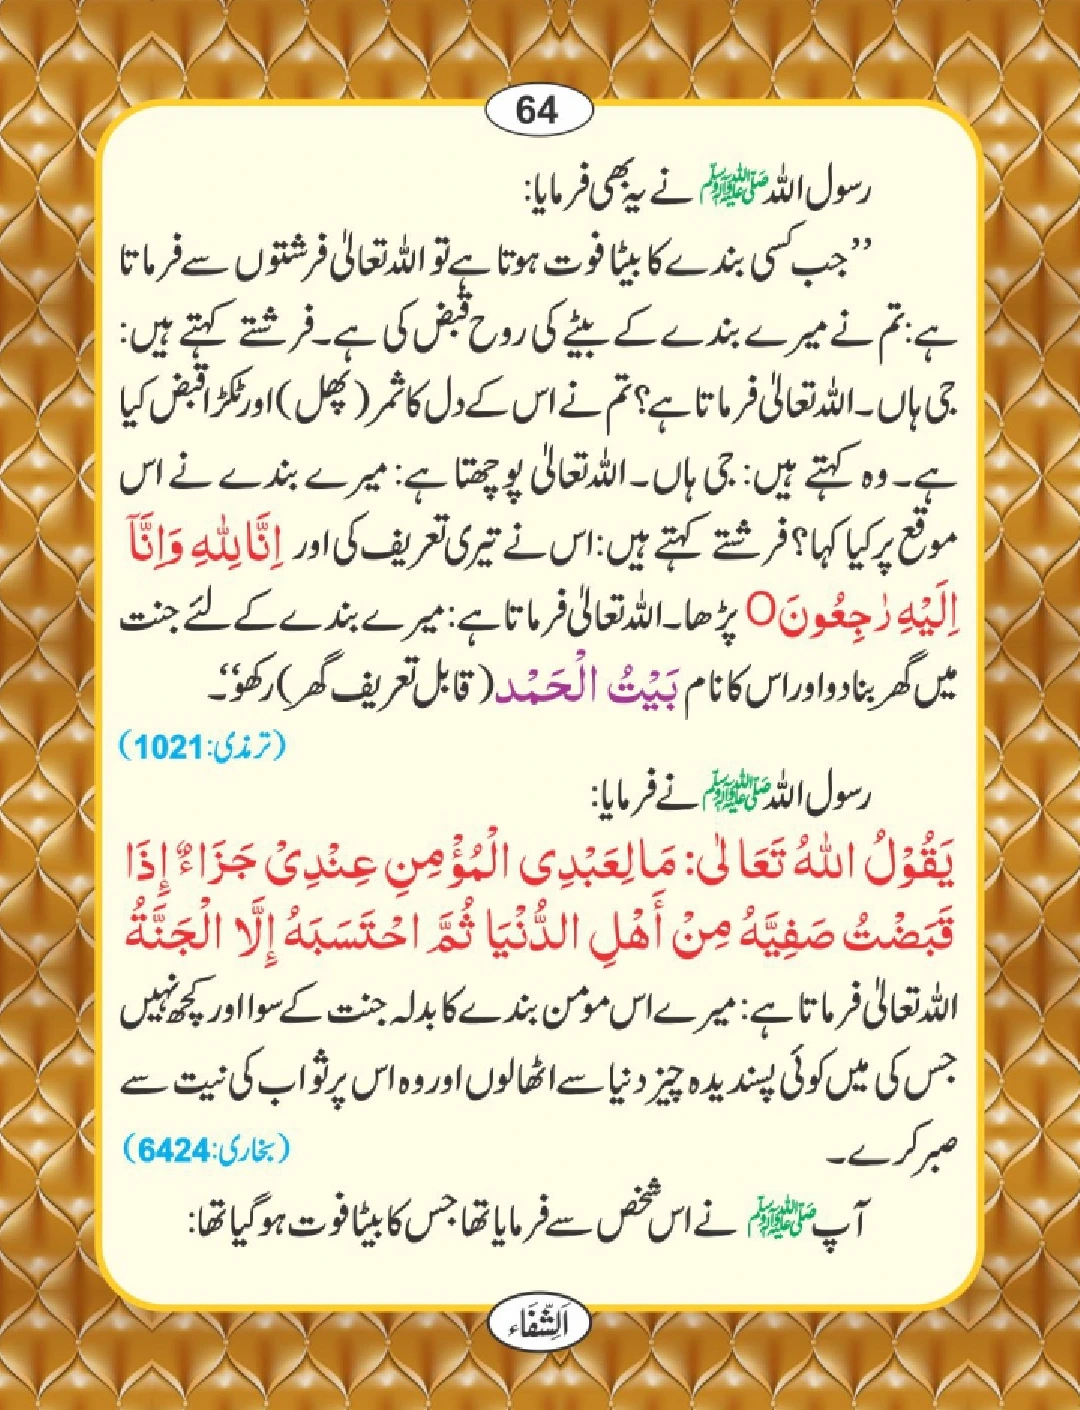 64
رسول اللہ ﷺ نے یہ بھی فرمایا:
’’جب کسی بندے کا بیٹا فوت ہوتا ہے تو اللہ تعالیٰ فرشتوں سے فرماتا
ہے: تم نے میرے بندے کے بیٹے کی روح قبض کی ہے۔ فرشتے کہتے ہیں:
جی ہاں۔ اللہ تعالیٰ فرماتا ہے؟ تم نے اس کے دل کا ثمر (پھل) اور ٹکڑا قبض کیا
ہے۔ وہ کہتے ہیں: جی ہاں۔ اللہ تعالیٰ پوچھتا ہے: میرے بندے نے اس
موقع پر کیا کہا؟ فرشتے کہتے ہیں: اس نے تیری تعریف کی اور اِنَّا لِلّٰهِ وَاِنَّآ
اِلَيْهِ رٰجِعُونَ O پڑھا۔ اللہ تعالیٰ فرماتا ہے: میرے بندے کے لئے جنت
میں گھر بنا دو اور اس کا نام بَيْتُ الْحَمْد (قابل تعریف گھر) رکھو‘‘۔
(ترمذی: 1021)
رسول اللہ ﷺ نے فرمایا:
يَقُوْلُ اللهُ تَعَالٰى: مَا لِعَبْدِى الْمُؤْمِنِ عِنْدِىْ جَزَاءٌ إِذَا
قَبَضْتُ صَفِيَّهُ مِنْ أَهْلِ الدُّنْيَا ثُمَّ احْتَسَبَهُ إِلَّا الْجَنَّةُ
اللہ تعالیٰ فرماتا ہے: میرے اس مومن بندے کا بدلہ جنت کے سوا اور کچھ نہیں
جس کی میں کوئی پسندیدہ چیز دنیا سے اٹھا لوں اور وہ اس پر ثواب کی نیت سے
صبر کرے۔ (بخاری: 6424)
آپ ﷺ نے اس شخص سے فرمایا تھا جس کا بیٹا فوت ہو گیا تھا:
اَلشِّفَاء